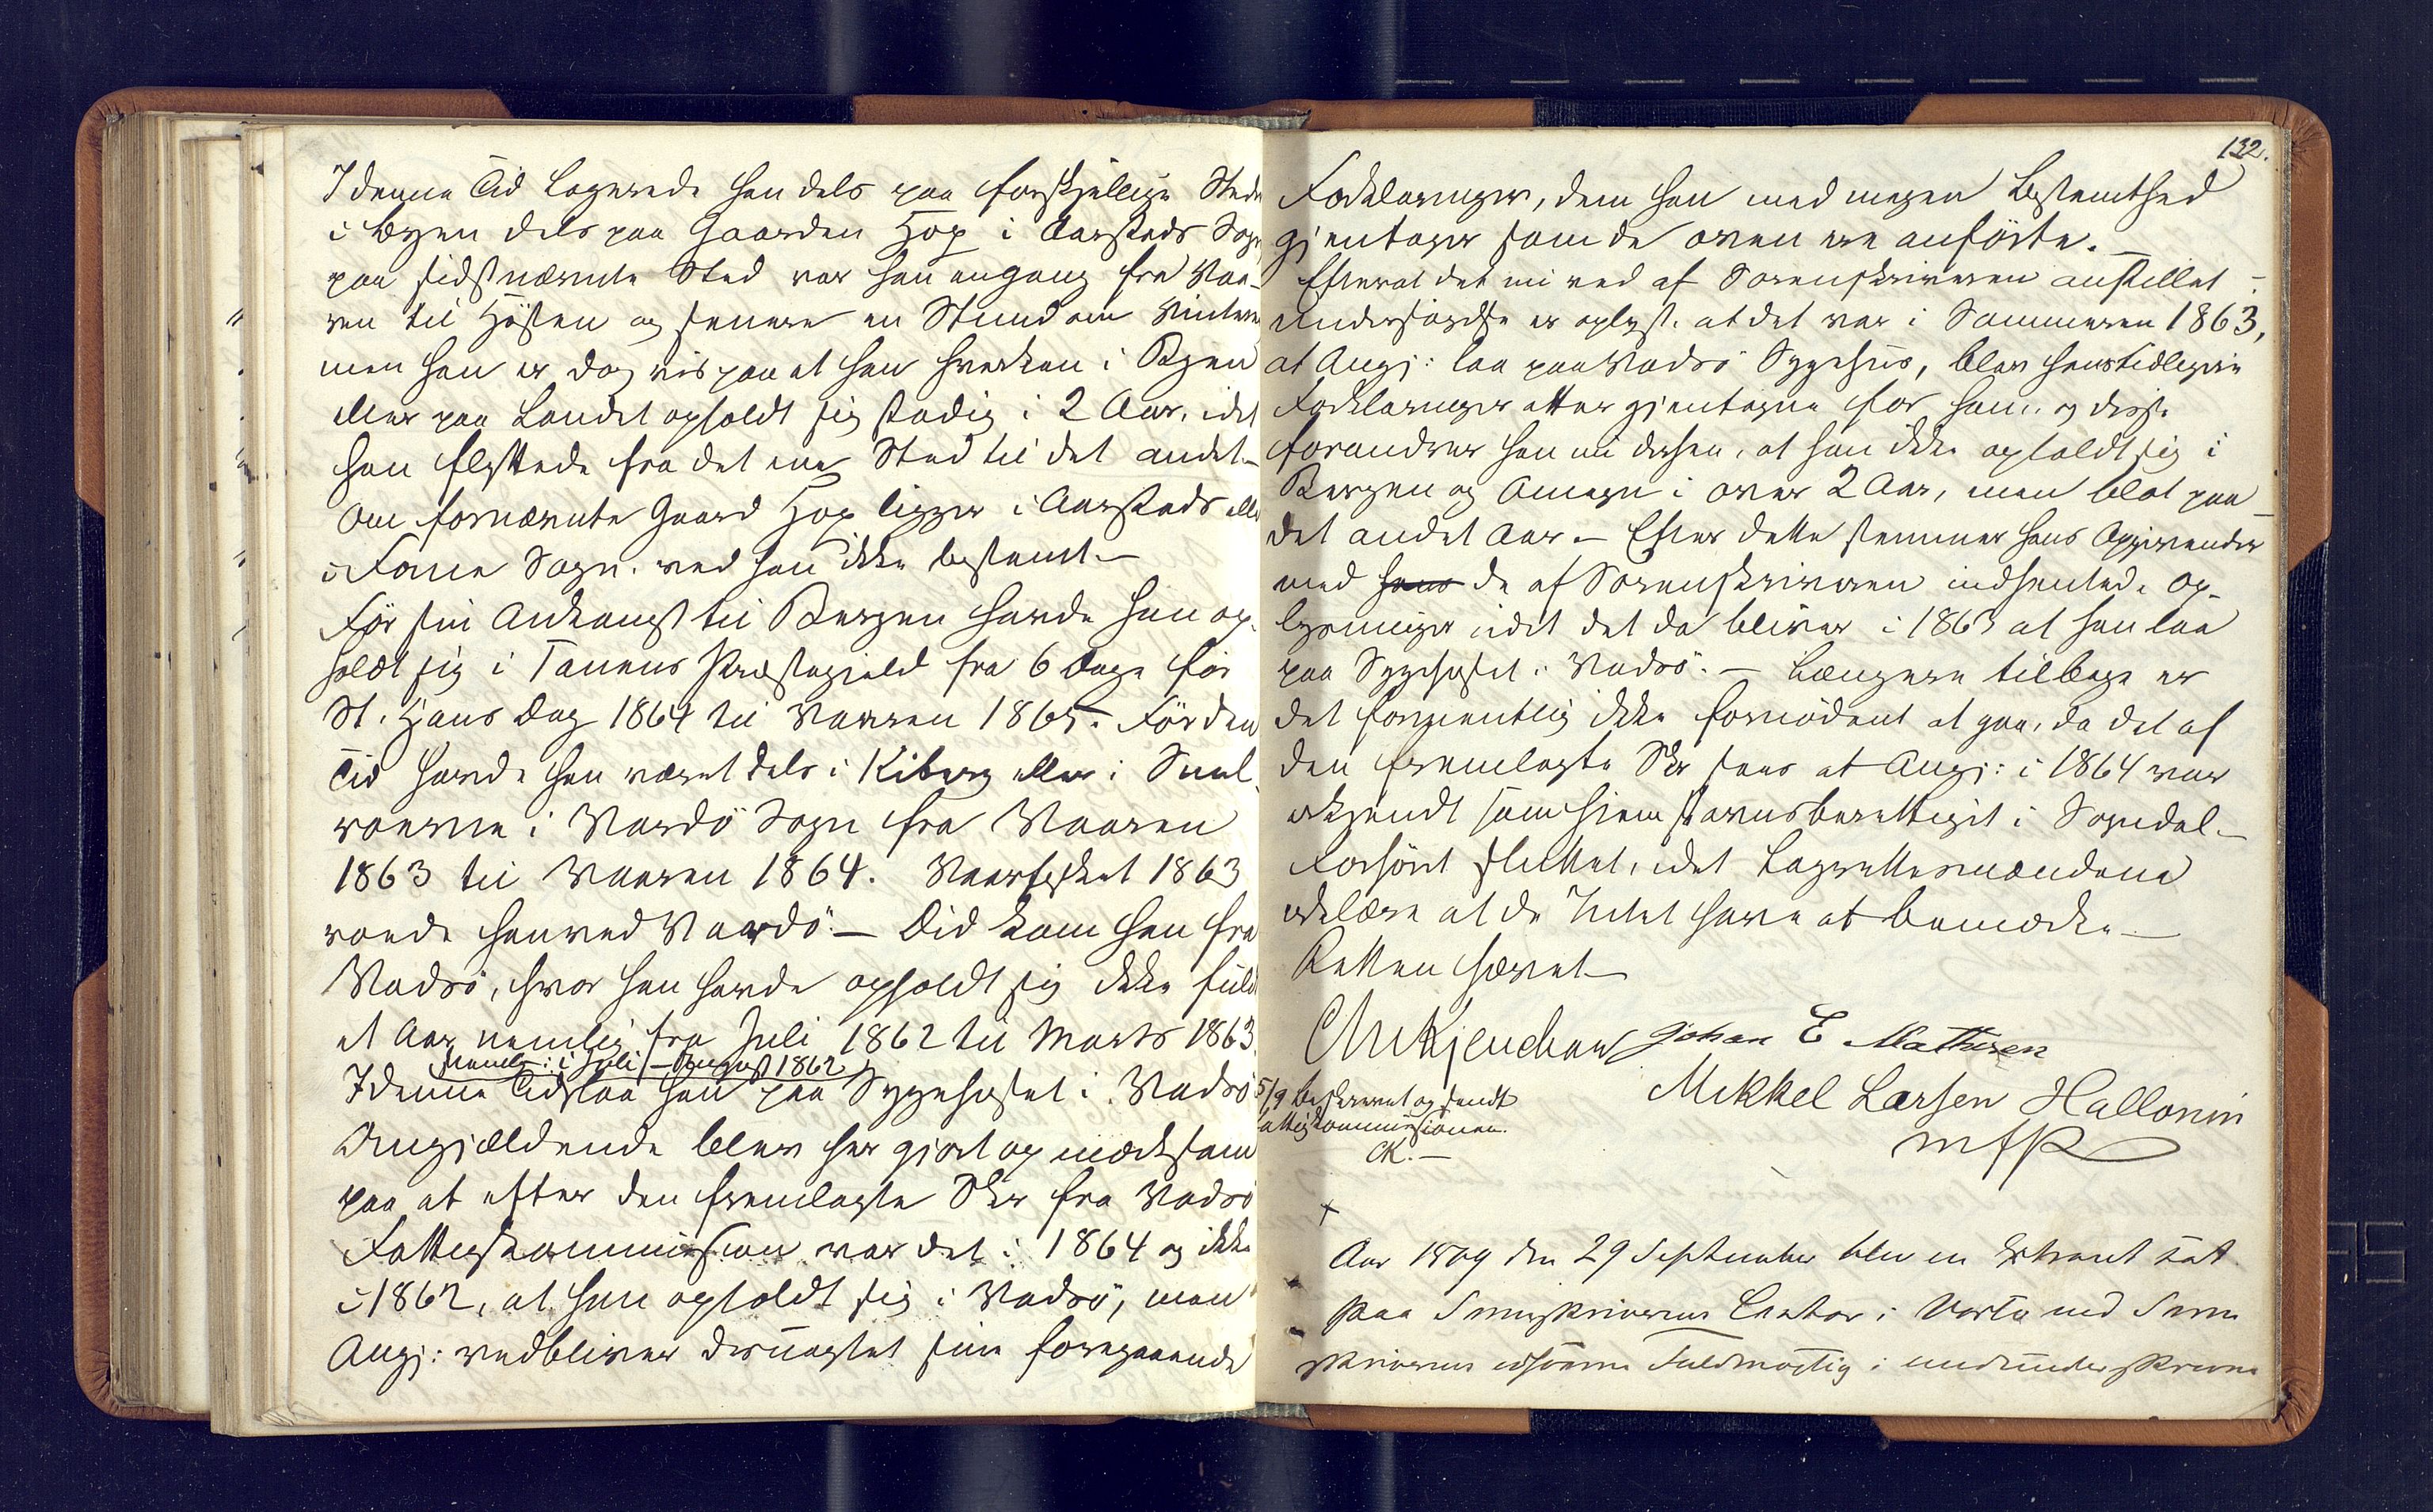 I denne Tid logerede han dels paa forskjellige Steder
i Byen dels paa Gaarden Hop i Aarstads Sogn
paa sidstnævnte Sted var han engang fra Vaa-
ren til Høsten og senere en Stund om Vinteren
men han er dog vis paa at han hverken i Byen
eller paa Landet opholdt sig stadig i 2 Aar, idet
han flyttede fra det ene Sted til det andet.-
Om fornævnte Gaard Hop ligger i Aarstads eller
i Fane Sogn, ved han ikke bestemt.-
Før sin Ankomst til Bergen havde han op-
holdt sig i Tanens Præstegjeld fra 6 Dage før
St. Hans Dag 1864 til Vaaren 1865. Før den
Tid havde han været dels i Kiberg eller i
i Vardø Sogn fra Vaaren
1863 til Vaaren 1864. Vaarfisket 1863
roede han ved Vardø.- Did kom han fra
Vadsø, hvor han havde opholdt sig ikke fuldt
et Aar nemlig fra Juli 1862 til Marts 1863.
nemlig: i Juli - August 1862
I denne Tid laa han paa Sygehuset i Vadsø
Angjældende blev her gjort opmærksom
paa at efter den fremlagte Skr fra Vadsø
Fattigkommission var det i 1864 og ikke
i 1862, at han opholdt sig i Vadsø, men
Angj: vedbliver desuagtet sine foregaaende
132.
Forklaringer, dem han med megen Bestemthed
gjentager som de oven ere anførte.-
Efterat det nu ved af Sorenskriveren anstillet
Undersøgelse er oplyst, at det var i Sommeren 1863,
at Angj: laa paa Vadsø Sygehus, blev hans tidligere
Forklaringer atter gjentagne for ham, og disse
forandrer han nu derhen, at han ikke opholdt sig i
Bergen og Omegn i over 2 Aar, men blot paa
det andet Aar.- Efter dette stemmer hans Opgivender
med hans de af Sorenskriveren indhentede Op-
lysninger idet det da bliver i 1863 at han laa
paa Sygehuset i Vadsø.- Længere tilbage er
det formentlig ikke fornødent at gaa, da det af
den fremlagte Skr sees at Angj: i 1864 var
erkjendt som hjemstavnsberettiget i Sogndal.-
Forhøret sluttet, idet Lagrettesmændene
erklære at de Intet have at bemærke.-
Retten hævet.-
Johan E Mathisen
Mikkel Larsen Hallonin
mfP
5/9 beskrevet og sendt
Fattigkommissionen.
CK.-
+
Aar 1869 den 29 September blev en Extraret sat
paa Sorenskriverens Contor i Vardø ved Soren
skriverens edsvorne Fuldmægtig i medunderskrevne